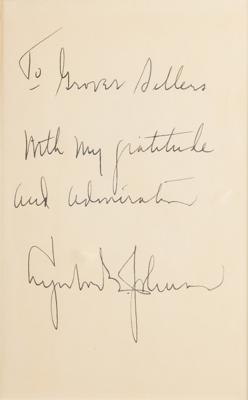 To Grover Sellers
With my gratitude
and admiration
Lyndon B. Johnson